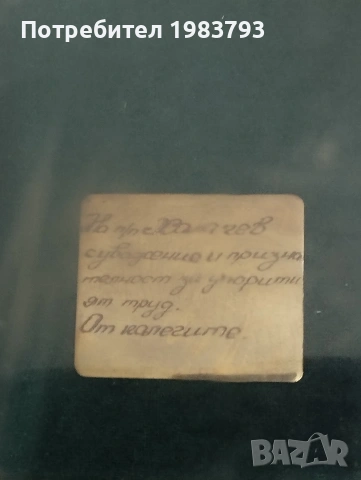 Потребител 1983793
На пр.
с уважение и призна
телност за упорити
ят труд.
От колегите.
BAZAR